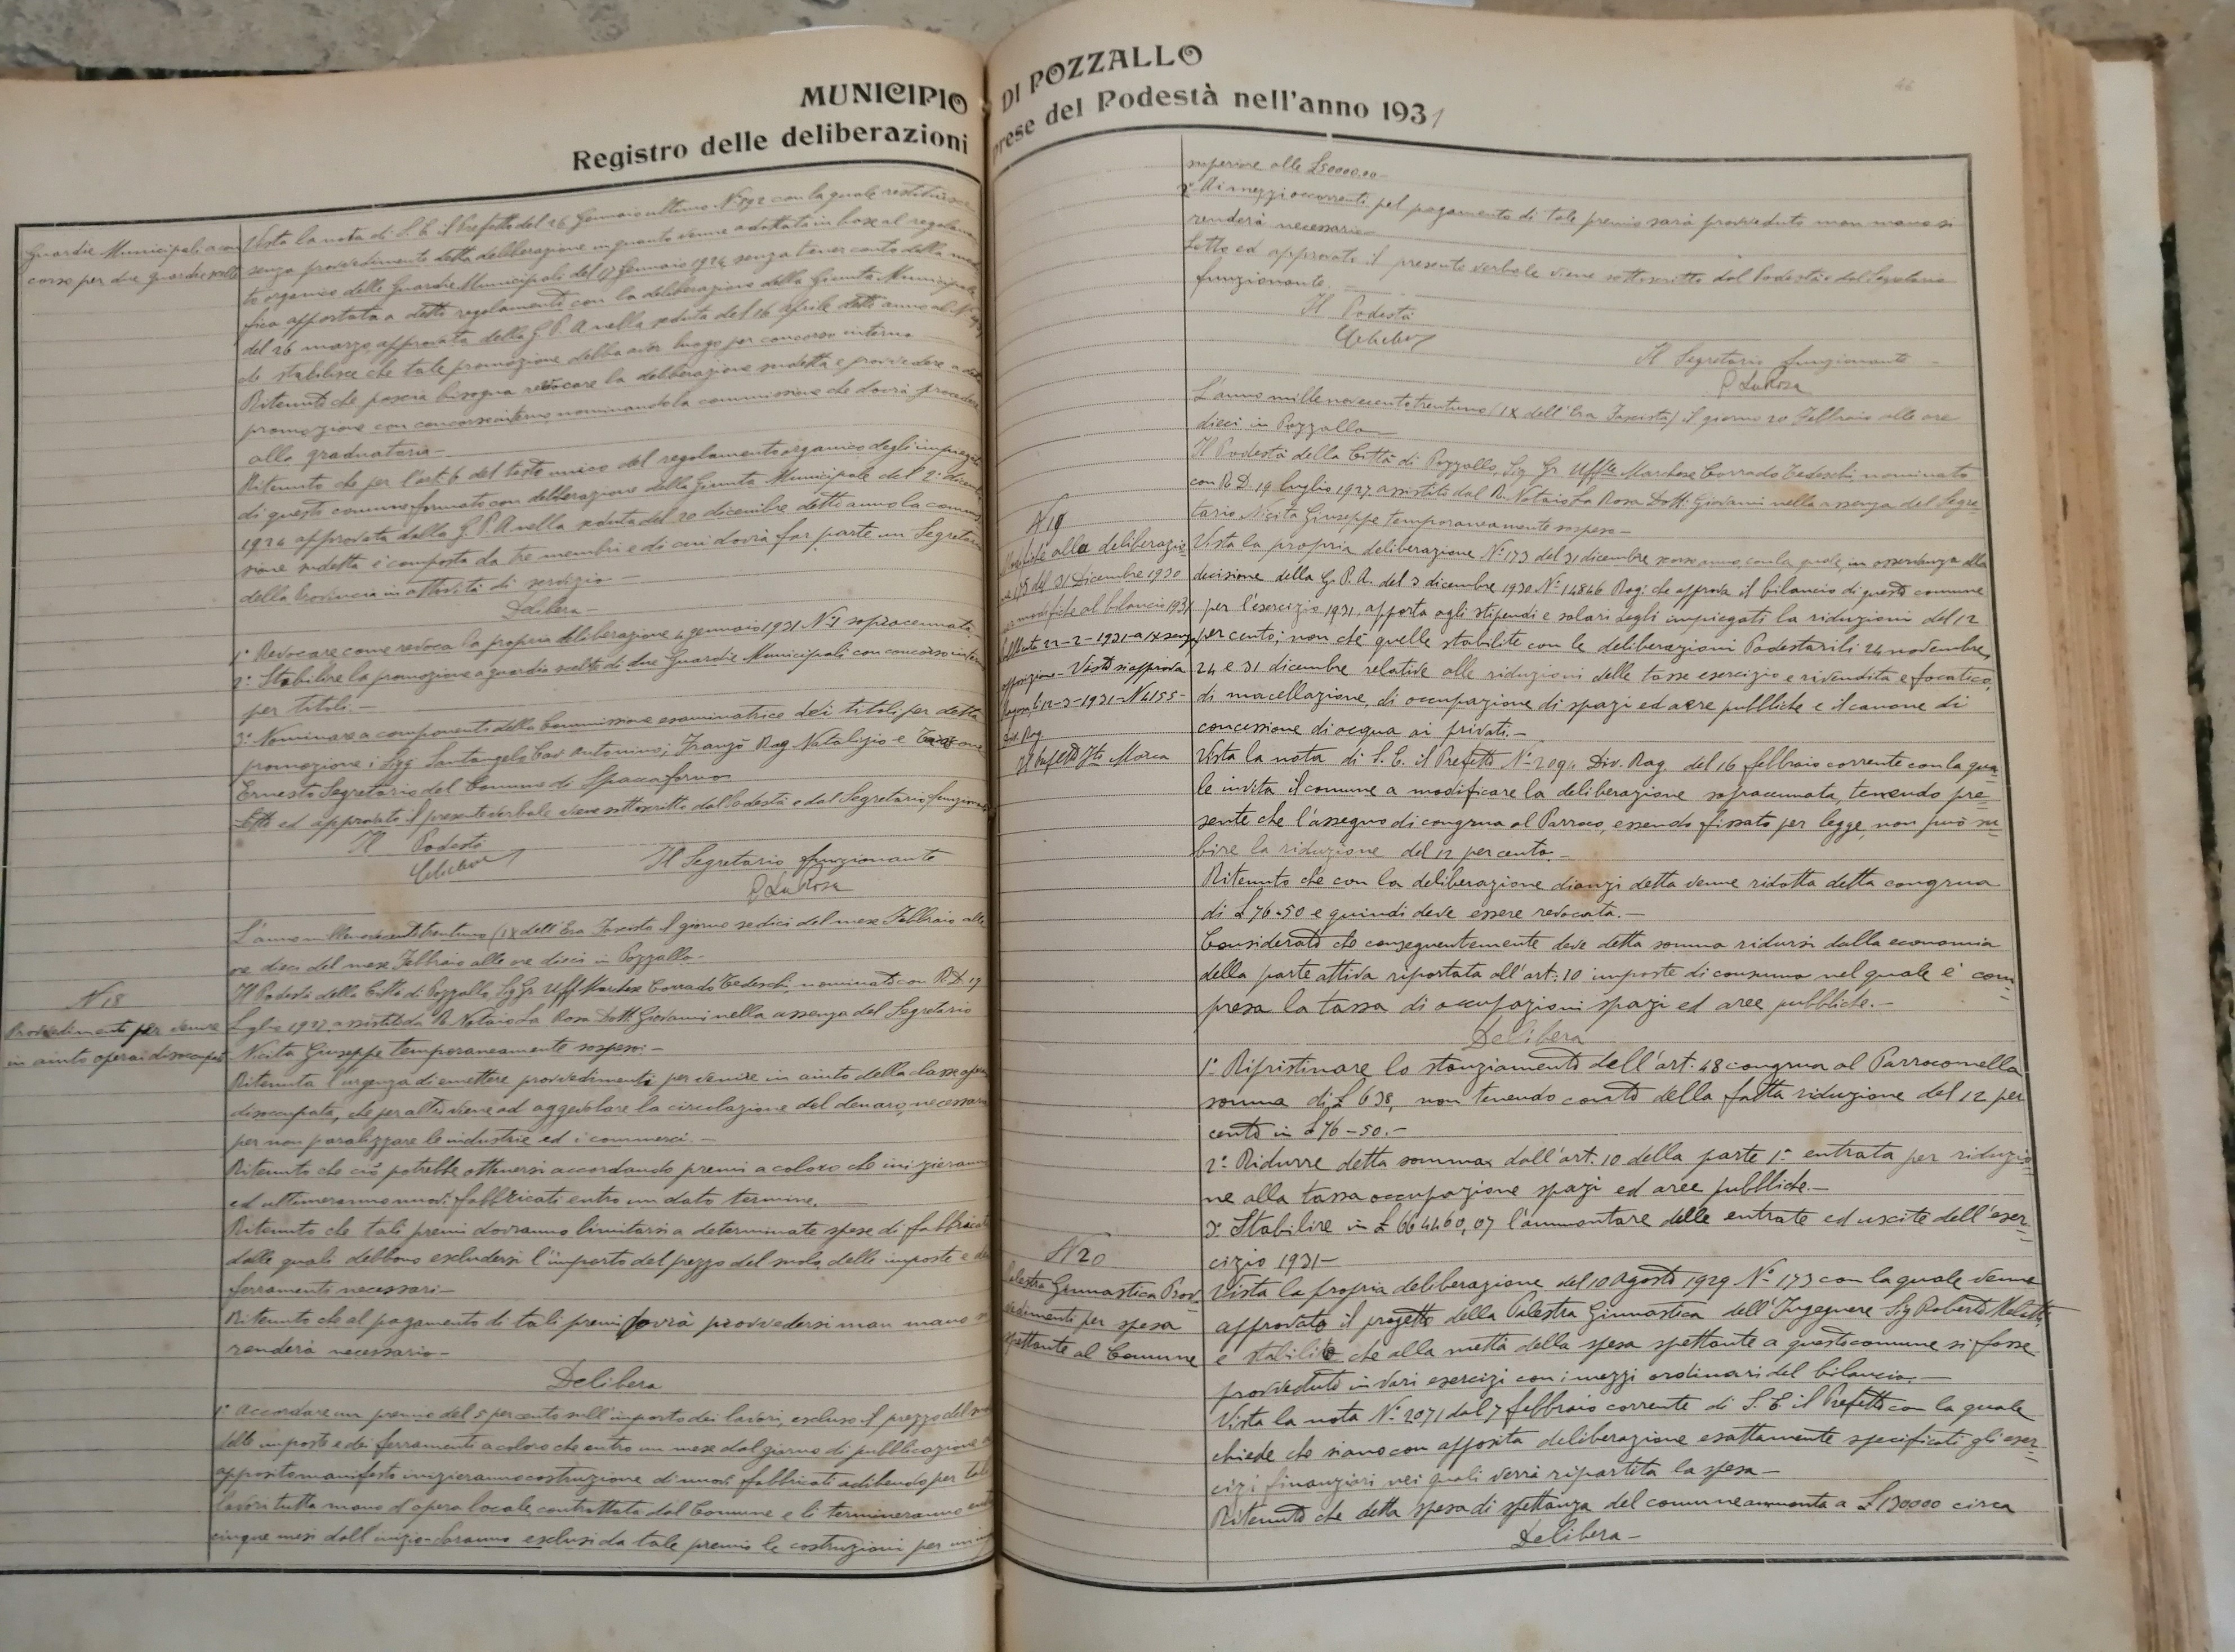 MUNICIPIO
Registro delle deliberazioni
Guardie Municipali con
corso per due guardie scelte
Vista la nota di S. E. il Prefetto del 26 Gennaio ultimo N. 792 con la quale restituisce
senza provvedimento detta deliberazione in quanto venne adottata in base al regolamen
to organico delle Guardie Municipali del 17 Gennaio 1924 senza tener conto della modi
fica apportata a detto regolamento con la deliberazione della Giunta Municipale
del 26 marzo approvata dalla G. P. A nella seduta del 16 aprile detto anno al N.
che stabilisce che tale promozione debba aver luogo per concorso interno
Ritenuto che perciò bisogna revocare la deliberazione sudetta e provvedere a detta
promozione con concorso interno nominando la commissione che dovrà procedere
alla graduatoria—
Ritenuto che per l'art. 6 del testo unico del regolamento organico degli impiegati
di questo comune formato con deliberazione della Giunta Municipale del 2 dicembre
1924 approvata dalla G. P. A nella seduta del 20 dicembre detto anno la commis
sione sudetta è composta da tre membri e di cui dovrà far parte un Segretario
della Provincia in attività di servizio—
Delibera—
1° Revocare come revoca la propria deliberazione 4 gennaio 1931 N. 1 sopracennata.
2° Stabilire la promozione a guardie scelte di due Guardie Municipali con concorso interno
per titoli.—
3° Nominare a componenti della Commissione esaminatrice dei titoli per detta
promozione i Sigg Santangelo Cav Antonino; Franzò Rag Natalizio e
Ernesto Segretario del Comune di Spaccaforno
Letto ed approvato il presente verbale viene sottoscritto dal Podestà e dal Segretario funzionante
Il Podestà
Il Segretario funzionante
G LaRosa
L'anno millenovecentotrentuno (IX dell'Era Fascista Il giorno sedici del mese Febbraio alle
ore dieci del mese Febbraio alle ore dieci in Pozzallo—
Il Podestà della Città di Pozzallo, Sig Gr. Uff Marchese Corrado Tedeschi, nominato con R. D. 19
N 18
Provvedimenti per venire
in aiuto operai disoccupati
Luglio 1927, assistito da R. Notaio La Rosa Dott. Giovanni nella assenza del Segretario
Nicita Giuseppe temporaneamente sospeso.—
Ritenuta l'urgenza di emettere provvedimenti per venire in aiuto della classe operaia
disoccupata, che per altro viene ad aggevolare la circolazione del denaro, necessaria
per non paralizzare le industrie ed i commerci.—
Ritenuto che ciò potrebbe ottenersi accordando premi a coloro che inizieranno
ed ultimeranno nuovi fabbricati entro un dato termine.
Ritenuto che tali premi dovranno limitarsi a determinate spese di fabbricati
dalle quali debbono escludersi l'importo del prezzo del suolo, delle imposte e dei
ferramenti necessari—
Ritenuto che al pagamento di tali premi dovrà provvedersi man mano si
renderà necessario—
Delibera
1° Accordare un premio del 5 per cento sull'importo dei lavori, escluso il prezzo del suolo
delle imposte e dei ferramenti a coloro che entro un mese dal giorno di pubblicazione di
apposito manifesto inizieranno costruzione di nuovi fabbricati adibendo per tali
lavori tutta mano d'opera locale contrattata dal Comune e li termineranno entro
cinque mesi dall'inizio - Saranno esclusi da tale premio le costruzioni per un
DI POZZALLO
prese del Podestà nell'anno 1931
46
superiore alle £50000.00—
2° Ai mezzi occorrenti pel pagamento di tale premio sarà provveduto man mano si
renderà necessario—
Letto ed approvato il presente verbale viene sottoscritto dal Podestà e dal Segretario
funzionante.—
Il Podestà
Il Segretario funzionante—
G. LaRosa
L'anno millenovecentotrentuno (IX dell'Era Fascista) il giorno 20 Febbraio alle ore
dieci in Pozzallo—
Il Podestà della Città di Pozzallo, Sig. Gr. Uffle Marchese Corrado Tedeschi, nominato
con R. D. 19 luglio 1927 assistito dal R. Notaio La Rosa Dott. Giovanni nella assenza del Segre
tario Nicita Giuseppe temporaneamente sospeso—
N 19
Modifiche alla deliberazio
ne 173 del 31 Dicembre 1930
per modifiche al bilancio 1931
Pubblicata 22-2-1931-a IX senza
opposizione— Visto si approva
Ragusa li 12-3-1931-N 4155-
Div. Rag
Il Prefetto Fto Marca
Vista la propria deliberazione N. 173 del 31 dicembre scorso anno con la quale, in osservanza alla
decisione della G. P. A. del 3 dicembre 1930 N. 14846 Rag: che approva il bilancio di questo comune
per l'esercizio 1931, apporta agli stipendi e salari degli impiegati la riduzioni del 12
per cento; non chè quelle stabilite con le deliberazioni Podestarili 24 novembre,
24 e 31 dicembre relative alle riduzioni delle tasse esercizio e rivendita e focatico,
di macellazione, di occupazione di spazi ed aere pubbliche e il canone di
concessione di acqua ai privati.—
Vista la nota di S. E. il Prefetto N. 2094 Div. Rag. del 16 febbraio corrente con la qua=
le invita il comune a modificare la deliberazione sopracennata, tenendo pre=
sente che l'assegno di congrua al Parroco, essendo fissato per legge, non può su=
bire la riduzione del 12 per cento.—
Ritenuto che con la deliberazione dianzi detta venne ridotta detta congrua
di £ 76-50 e quindi deve essere revocata.—
Considerato che conseguentemente deve detta somma ridursi dalla economia
della parte attiva riportata all'art: 10 imposte di consumo nel quale è com=
presa la tassa di occupazioni spazi ed aree pubbliche.—
Delibera
1° Ripristinare lo stanziamento dell'art. 48 congrua al Parroco nella
somma di £ 638, non tenendo conto della fatta riduzione del 12 per
cento in £ 76-50.—
2° Ridurre detta somma dall'art. 10 della parte 1° entrata per riduzio=
ne alla tassa occupazione spazi ed aree pubbliche.—
3° Stabilire in £ 664460,07 l'ammontare delle entrate ed uscite dell'eser=
cizio 1931—
N 20
Palestra Ginnastica Prov=
vedimenti per spesa
spettante al Comune
Vista la propria deliberazione del 10 Agosto 1929 N. 173 con la quale venne
approvato il progetto della Palestra Ginnastica dell'Ingegnere Sig Roberto
e stabilito che alla metà della spesa spettante a questo comune si fosse
provveduto in vari esercizi con i mezzi ordinari del bilancio.—
Vista la nota N. 2071 dal 7 febbraio corrente di S. E il Prefetto con la quale
chiede che siano con apposita deliberazione esattamente specificati gli eser=
cizi finanziari nei quali verrà ripartita la spesa—
Ritenuto che detta spesa di spettanza del comune ammonta a £ 130000 circa
Delibera—